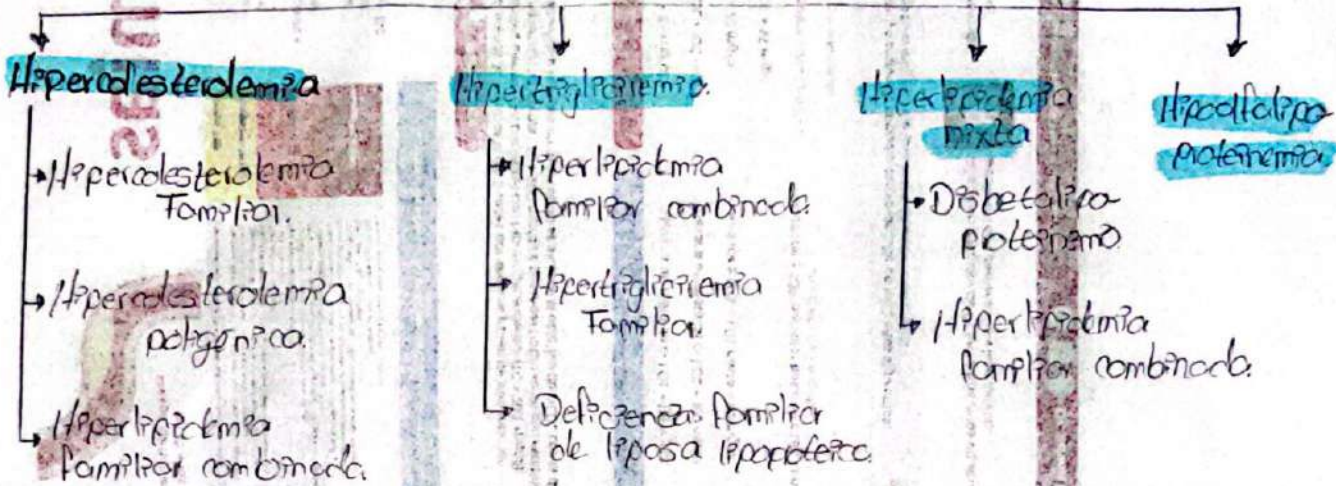 Hipercolesterolemia
Hipercolesterolemia
Familiar.
Hipercolesterolemia
poligénica.
Hiperlipidemia
familiar combinada.
Hipertrigliciremia.
Hiperlipidemia
familiar combinada.
Hipertrigliciremia
Familiar.
Deficiencia familiar
de liposa lipoproteica.
Hiperlipidemia
mixta
Disbetalipo
proteinemo
Hiperlipidemia
familiar combinada.
Hipoalfalipo
proteinemia